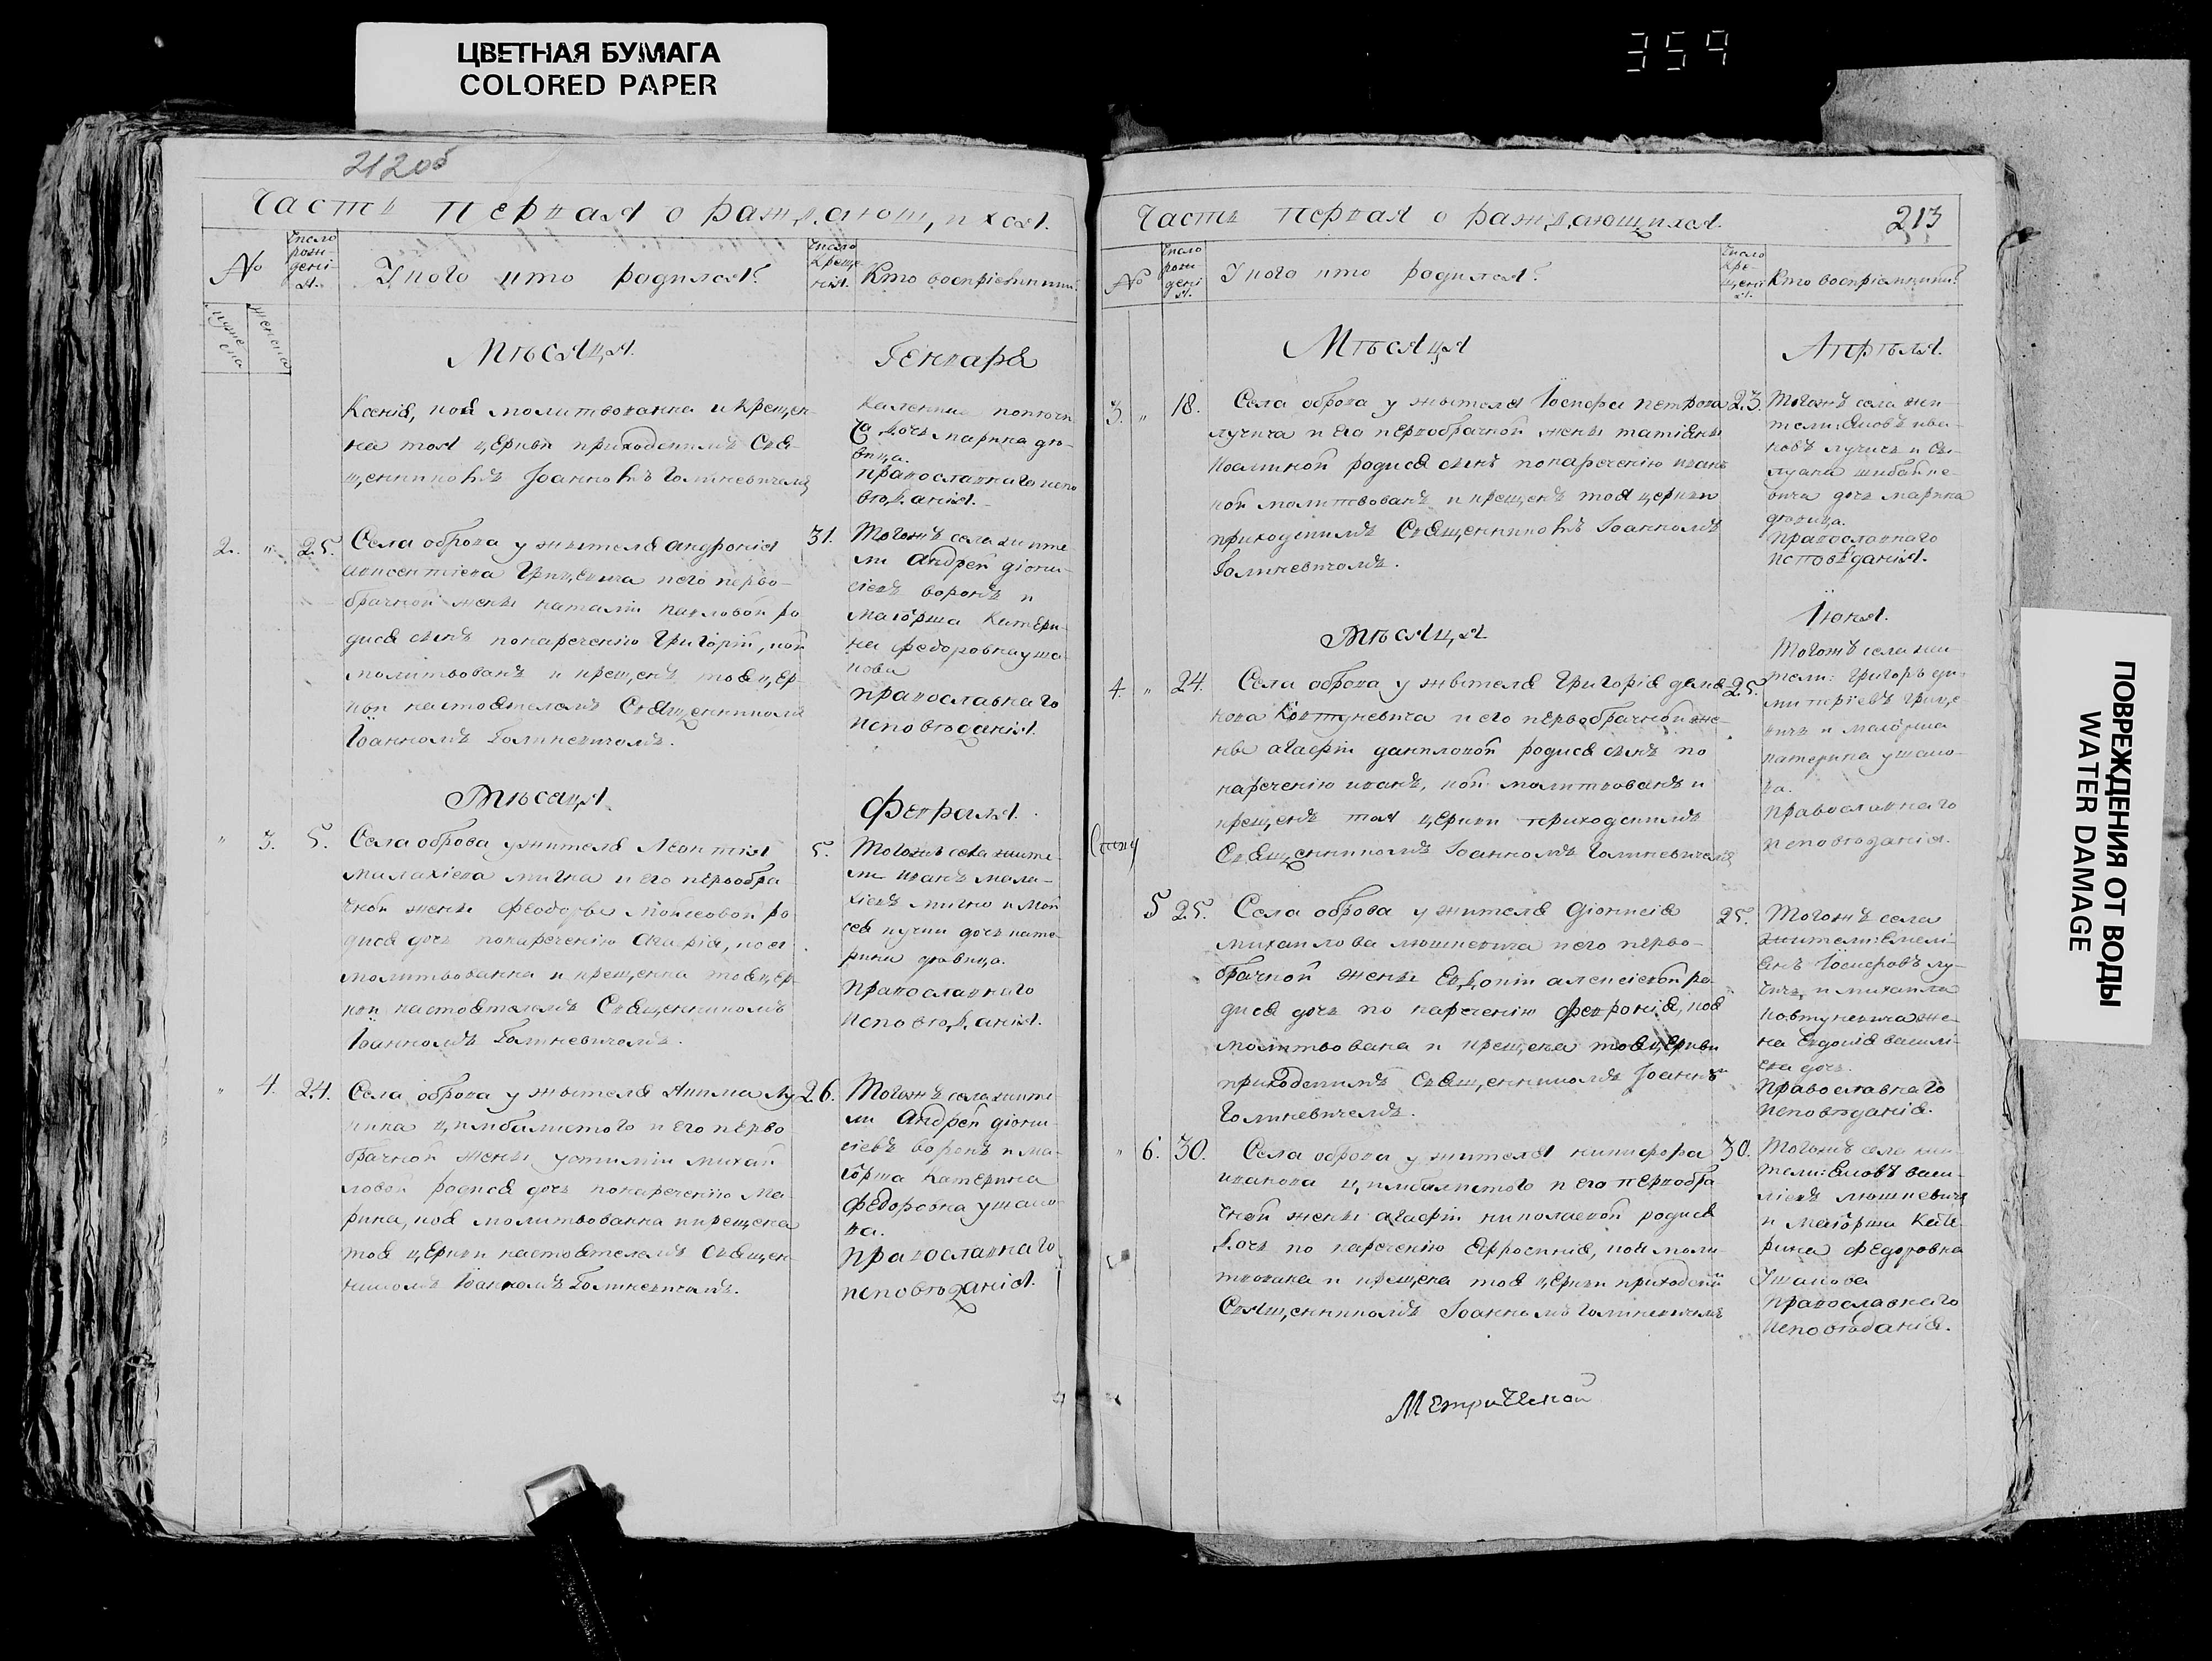 ЦВЕТНАЯ БУМАГА
COLORED PAPER
359
212об
Часть первая о раждающихся.
№
Число рождения.
У кого кто родился?
Число крещения.
Кто восприемники?
мужеска
женска
Мѣсяца.
Генваря
Ксенія, коя молитвованна и крещен-
на тоя церкви приходскимъ Свя-
щенникомъ Іоанномъ Голиневичемъ
дочь марина дѣ-
вица.
православнаго испо
вѣданія.
2. " 25.
Села оброва у жителя андронія
авксентіева Грицевича и его перво-
брачной жены наталіи павловой ро
дися сынъ понареченію Григорій, кой
молитвованъ и крещенъ тоя цер-
кви настоятелемъ Священникомъ
Іоанномъ Голиневичемъ.
31.
Тогожъ села жите
ли андрей діони-
сіевъ воронъ и
маіорша катери-
на федоровна уша-
кова
православнаго
исповѣданія.
Мѣсяца.
Февраля.
" 3. 5.
Села оброва у жителя Леонтія
малахіева мична и его первобра
чной жены Феодоры Моисеовой ро
дися дочь понареченію агафія, коя
молитвованна и крещенна тоя цер-
кви настоятелемъ Священникомъ
Іоанномъ Голиневичемъ.
5.
Тогожъ села жите-
ли иванъ мала-
хіевъ мично и Мой
сея лучич дочь кате-
рина дѣвица.
православнаго
исповѣданія.
" 4. 24.
Села оброва у жителя Якима Лу
кина цимбалистого и его перво
брачной жены устиміи михай
ловой родися дочь понареченію Ма
рина, коя молитвованна и крещена
тоя церкви настоятелемъ Священ
никомъ Іоанномъ Голиневичемъ.
26.
Тогожъ села жите
ли андрей діони-
сіевъ воронъ и ма-
іорша катерина
федоровна ушако-
ва.
православнаго
исповѣданія.
Часть первая о раждающихся.
213
№
Число рождения.
У кого кто родился?
Число крещения.
Кто восприемники?
Мѣсяца
Апрѣля.
3. " 18.
Села оброва у жителя Іосифа петрова
лучича и его первобрачной жены татіаны
родися сынъ понареченію иванъ
кой молитвованъ и крещенъ тоя церкви
приходскимъ Священникомъ Іоанномъ
Голиневичемъ.
23.
Тогожъ села жи
тели: Яковъ ива-
новъ лучичъ и
вича дочь марина
дѣвица.
православнаго
исповѣданія.
Мѣсяца
Іюня.
4 " 24.
Села оброва у жителя Григорія демя
нова Ковтуневича и его первобрачной же-
ны агафіи даниловой родися сынъ по
нареченію иванъ, кой молитвованъ и
крещенъ тоя церкви приходскимъ
Священникомъ Іоанномъ Голиневичемъ
25.
Тогожъ села жи-
тели: Григоръ ди-
митріевъ Грице
вичъ и маіорша
катерина ушако-
ва.
православнаго
исповѣданія.
5 25.
Села оброва у жителя Діонисія
михаилова мошневича и его перво-
брачной жены Евдокіи алексіевой ро-
дися дочь по нареченію февронія, коя
молитвована и крещена тоя церкви
приходскимъ Священникомъ Іоанномъ
Голиневичемъ.
25.
Тогожъ села
жители: Емелі-
янъ Іосифовъ лу-
чичъ и михаила
ковтуневича же-
на Евдокія васил-
ева дочь.
православнаго
исповѣданія.
" 6. 30.
Села оброва у жителя никифора
иванова цимбалистого и его первобра
чной жены агафіи николаевой родися
дочь по нареченію Ефросинія, коя моли-
твована и крещена тоя церкви приходски
Священникомъ Іоанномъ Голиневичемъ
30.
Тогожъ села жи-
тели: Яковъ васи-
ліевъ мошневичъ
и маіорша Кате
рина Федоровна
Ушакова
православнаго
исповѣданія.
Метрической
ПОВРЕЖДЕНИЯ ОТ ВОДЫ
WATER DAMAGE